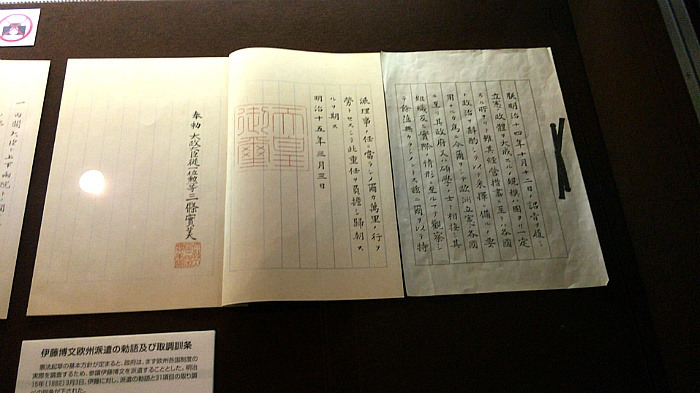 朕明治十四年十月十二日ノ詔旨ヲ履ミ
立憲ノ政體ヲ大成スルノ規模ハ固ヨリ一定
スル所アリト雖其經營措畫ニ至テハ各國
ノ政治ヲ斟酌シテ以テ采擇ニ備ルノ要
用ナルカ爲ニ今爾ヲシテ歐洲立憲ノ各國
ニ至リ其政府又ハ碩學ノ士ト相接シ其
組織及ヒ實際ノ情形ニ至ルマテ觀察シテ
餘蘊無カラシメントス茲ニ爾ヲ以テ特
派理事ノ任ニ當ラシメ爾カ萬里ノ行ヲ
勞トセスシテ此重任ヲ負擔シ歸朝ス
ルヲ期ス
明治十五年三月三日
天皇
御璽
奉勅 太政大臣從一位勲一等三條實美
一 内閣大臣ト上下兩院トノ關
伊藤博文欧州派遣の勅語及び取調訓条
憲法起草の基本方針が定まると、政府は、まず欧州各国制度の
実際を調査するため、参議伊藤博文を派遣することとした。明治
15年(1882)3月3日、伊藤に対し、派遣の勅語と31項目の取り調